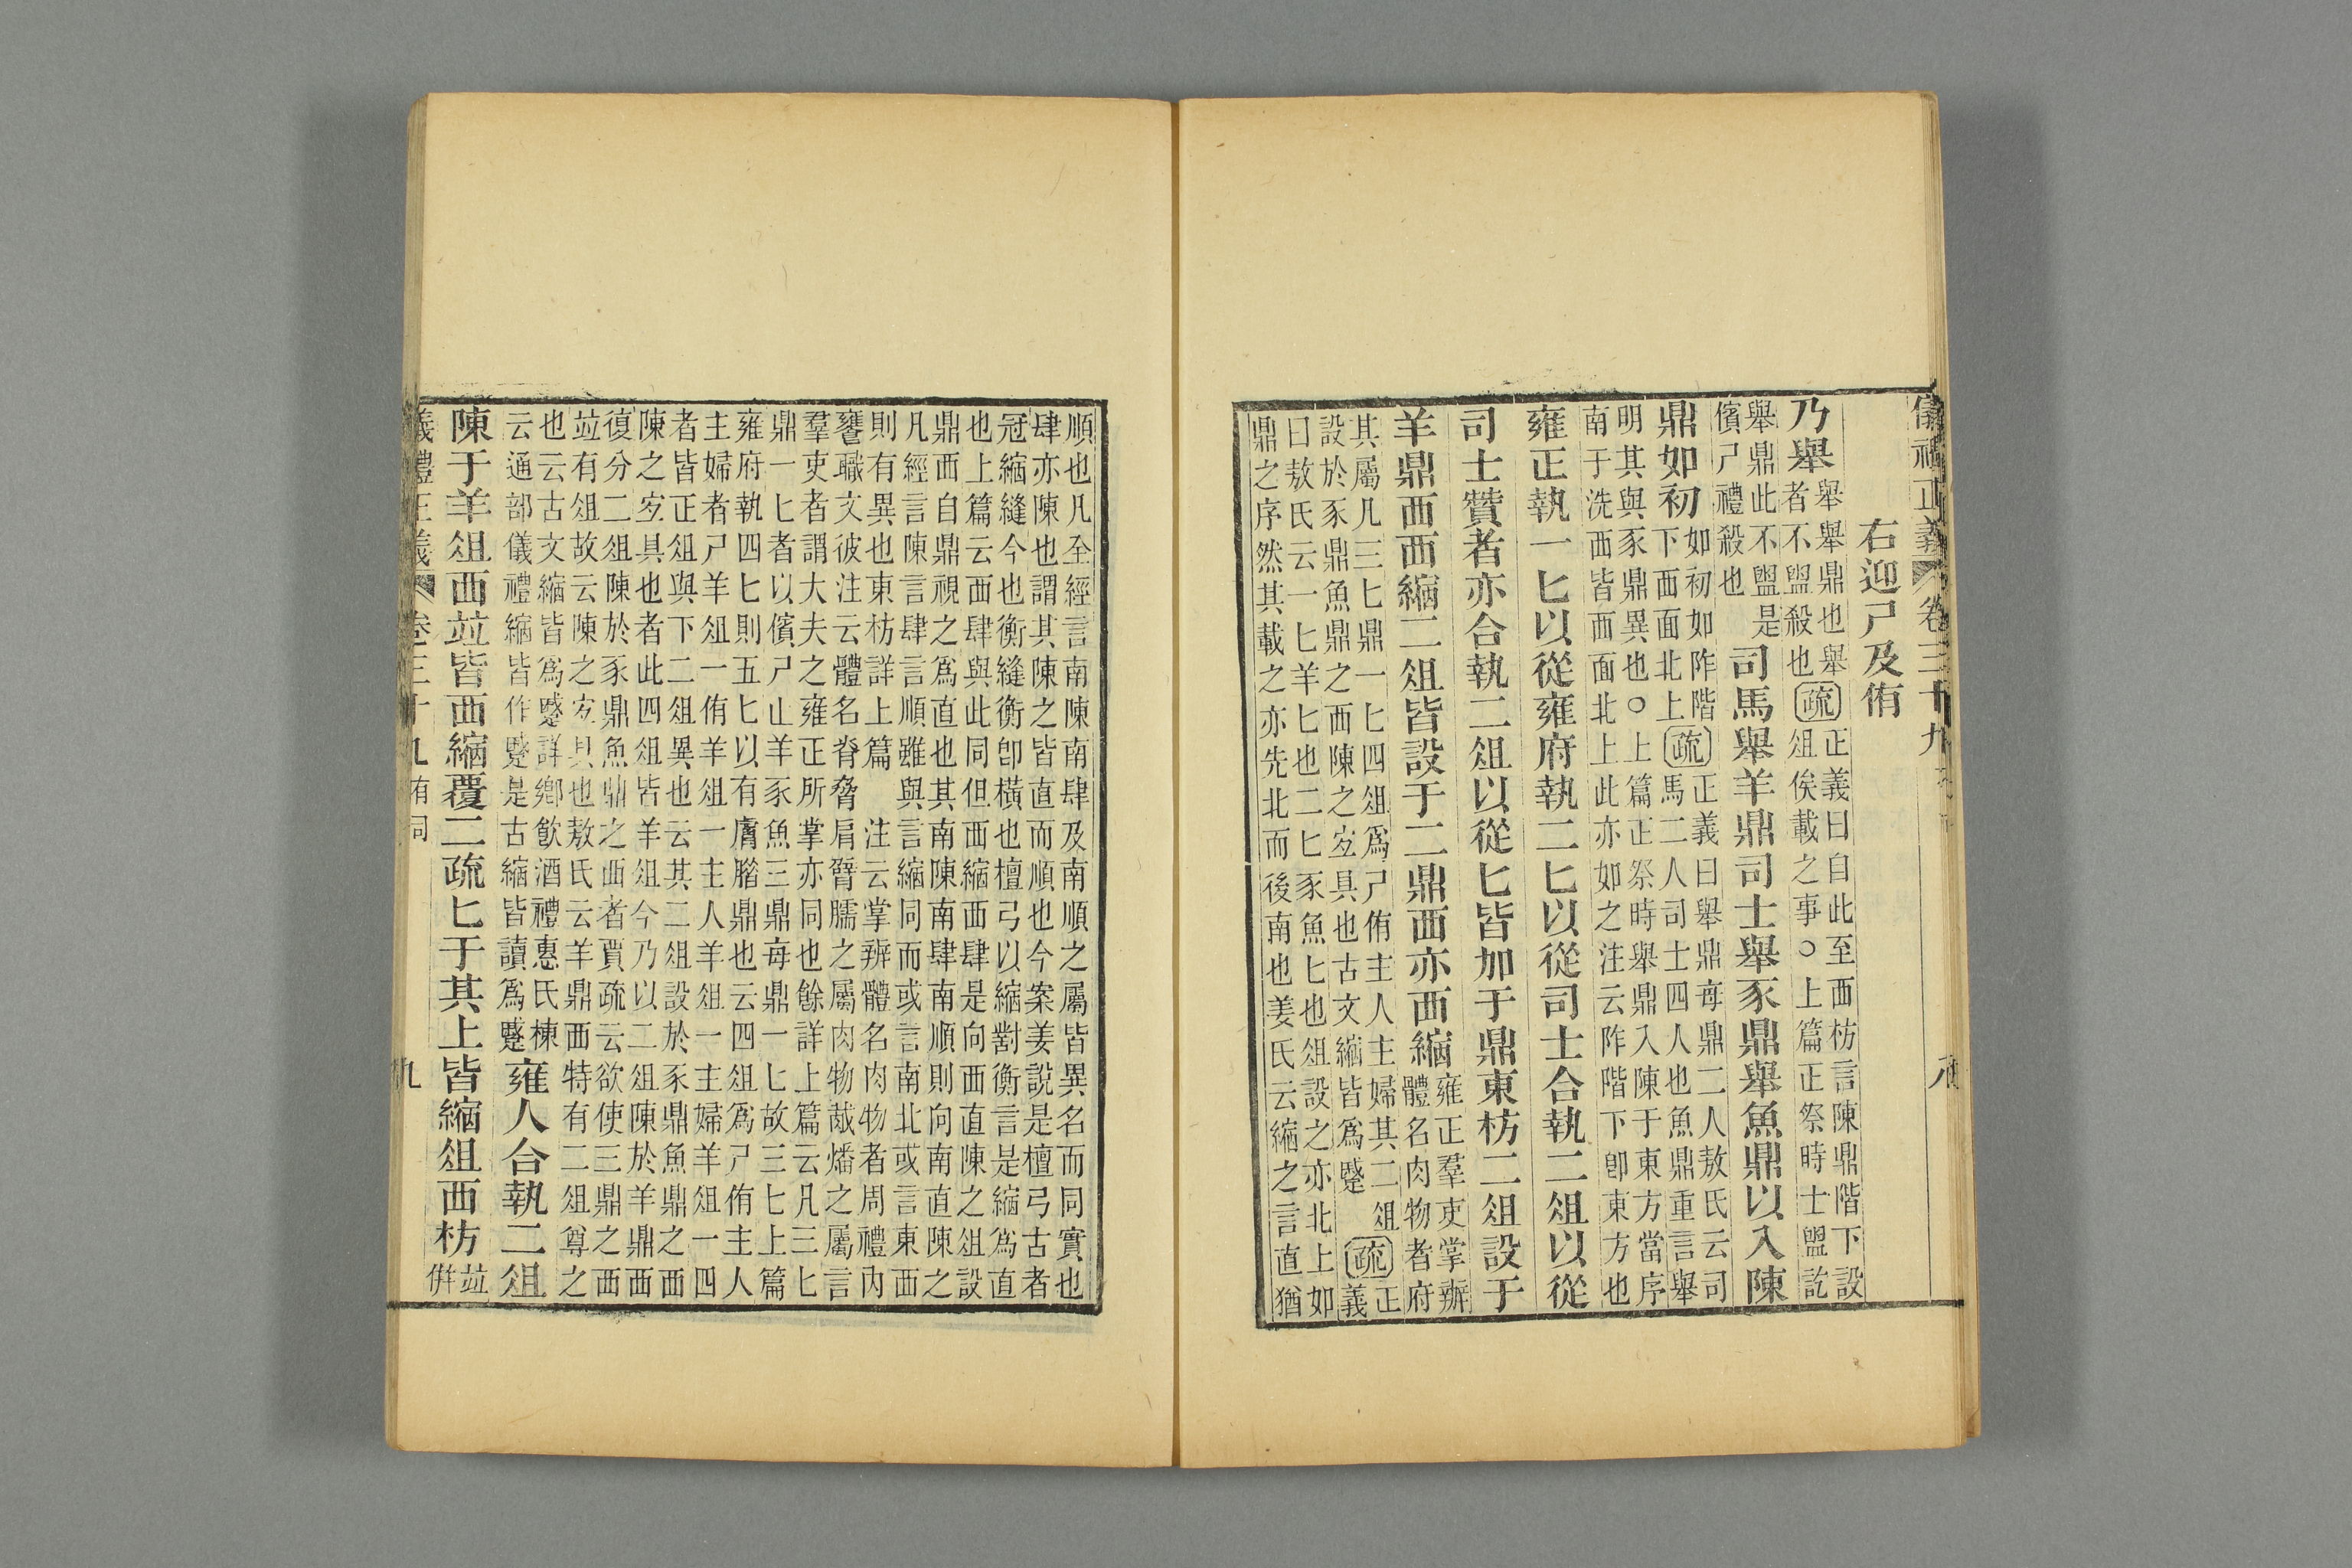 儀禮正義 卷三十九 八
右迎尸及侑
乃舉
舉舉鼎也舉
者不盥殺也
疏
正義曰自此至西枋言陳鼎階下設
俎俟載之事○上篇正祭時士盥訖
舉鼎此不盥是
儐尸禮殺也
司馬舉羊鼎司士舉豕鼎舉魚鼎以入陳
鼎如初
如初如阼階
下西面北上
疏
正義曰舉鼎每鼎二人敖氏云司
馬二人司士四人也魚鼎重言舉
明其與豕鼎異也○上篇正祭時舉鼎入陳于東方當序
南于洗西皆西面北上此亦如之注云阼階下卽東方也
雍正執一匕以從雍府執二匕以從司士合執二俎以從
司士贊者亦合執二俎以從匕皆加于鼎東枋二俎設于
羊鼎西西縮二俎皆設于二鼎西亦西縮
雍正羣吏掌辨
體名肉物者府
其屬凡三匕鼎一匕四俎爲尸侑主人主婦其二俎
設於豕鼎魚鼎之西陳之宐具也古文縮皆爲蹙
疏
正
義
曰敖氏云一匕羊匕也二匕豕魚匕也俎設之亦北上如
鼎之序然其載之亦先北而後南也姜氏云縮之言直猶
順也凡至經言南陳南肆及南順之屬皆異名而同實也
肆亦陳也謂其陳之皆直而順也今案姜說是檀弓古者
冠縮縫今也衡縫衡卽橫也檀弓以縮對衡言是縮爲直
也上篇云西肆與此同但西縮西肆是向西直陳之俎設
鼎西自鼎視之爲直也其南陳南肆南順則向南直陳之
凡經言陳言肆言順雖與言縮同而或言南北或言東西
則有異也東枋詳上篇　注云掌辨體名肉物者周禮內
饔職文彼注云體名脊脅肩臂臑之屬肉物胾燔之屬言
羣吏者謂大夫之雍正所掌亦同也餘詳上篇云凡三匕
鼎一匕者以儐尸止羊豕魚三鼎每鼎一匕故三匕上篇
雍府執四匕則五匕以有膚腊鼎也云四俎爲尸侑主人
主婦者尸羊俎一侑羊俎一主人羊俎一主婦羊俎一四
者皆正俎與下二俎異也云其二俎設於豕鼎魚鼎之西
陳之宐具也者此四俎皆羊俎今乃以二俎陳於羊鼎西
復分二俎陳於豕鼎魚鼎之西者賈疏云欲使三鼎之西
竝有俎故云陳之宐具也敖氏云羊鼎西特有二俎尊之
也云古文縮皆爲蹙詳鄉飮酒禮惠氏棟
云通部儀禮縮皆作蹙是古縮皆讀爲蹙
雍人合執二俎
陳于羊俎西竝皆西縮覆二疏匕于其上皆縮俎西枋
竝
倂
儀禮正義 卷三十九 侑司 九